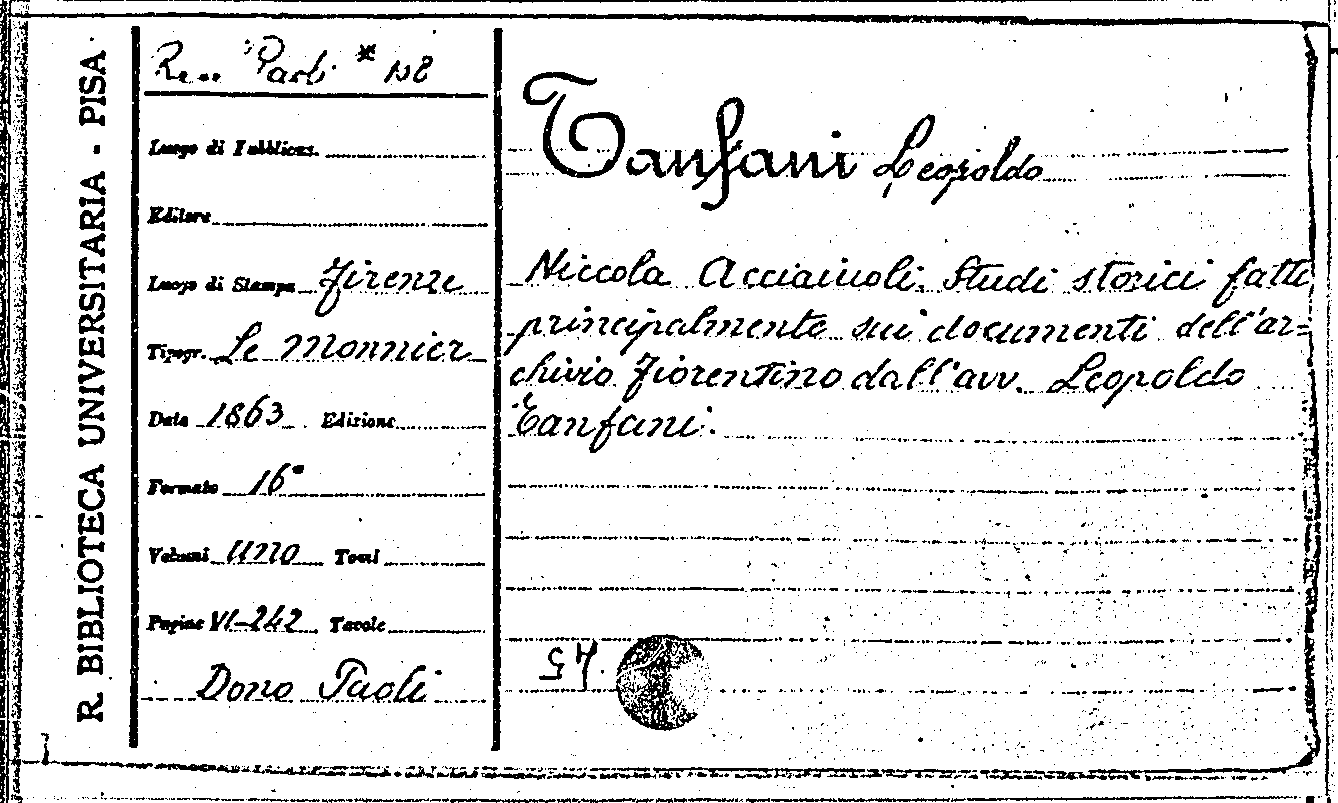 R. BIBLIOTECA UNIVERSITARIA - PISA
Paoli * 108
Luogo di Pubblicaz.
Editore
Luogo di Stampa Firenze
Tipogr. Le Monnier
Data 1863 Edizione
Formato 16°
Volumi uno Tomi
Pagine VI-242 Tavole
Dono Paoli
Tanfani Leopoldo
Niccola Acciaiuoli. Studi storici fatti
principalmente sui documenti dell'ar=
chivio fiorentino dall'avv. Leopoldo
Tanfani.